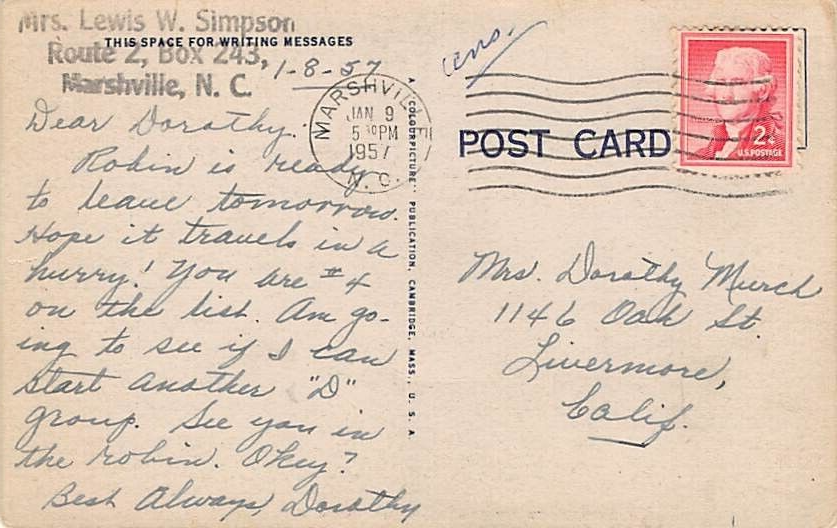 Mrs. Lewis W. Simpson
THIS SPACE FOR WRITING MESSAGES
Route 2, Box 243,
Marshville, N. C.
1-8-57
Dear Dorothy:
Robin is ready
to leave tomorrow.
Hope it travels in a
hurry! You are #4
on the list. Am go-
ing to see if I can
start another "D"
group. See you in
the robin. Okey?
Best Always, Dorothy
A "COLOURPICTURE" PUBLICATION, CAMBRIDGE, MASS., U. S. A
MARSHVILLE
JAN 9
5 30 PM
1957
N. C.
ans.
POST CARD
2¢
U.S. POSTAGE
Mrs. Dorothy Murch
1146 Oak St.
Livermore,
Calif.